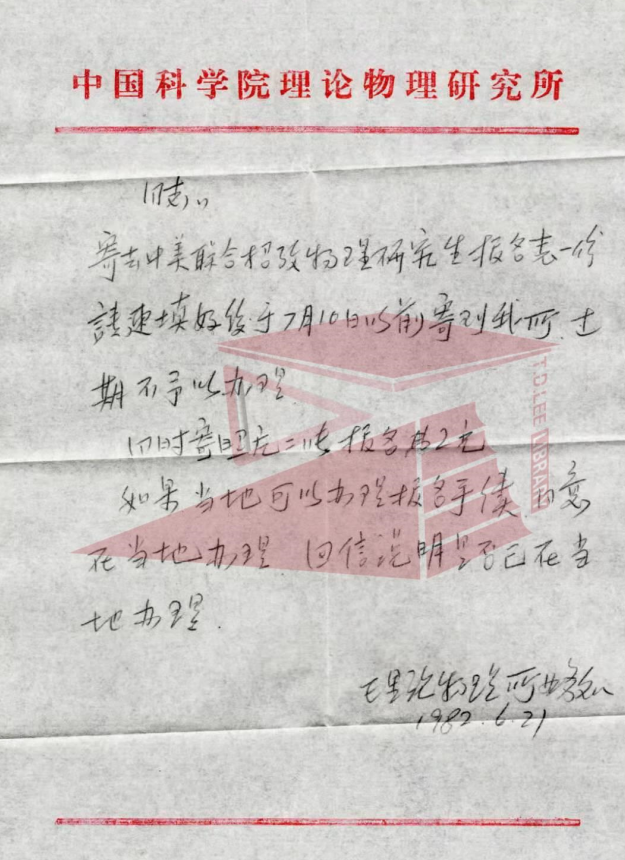 中国科学院理论物理研究所
同志:
寄去中美联合招致物理研究生报名表一份
請速填好後于7月10日以前寄到我所.过
期不予以办理.
同时寄照片二张报名费2元
如果当地可以办理报名手续,同意
在当地办理.回信说明是否已在当
地办理.
理论物理所
1982.6.21
T.D.LEE LIBRARY